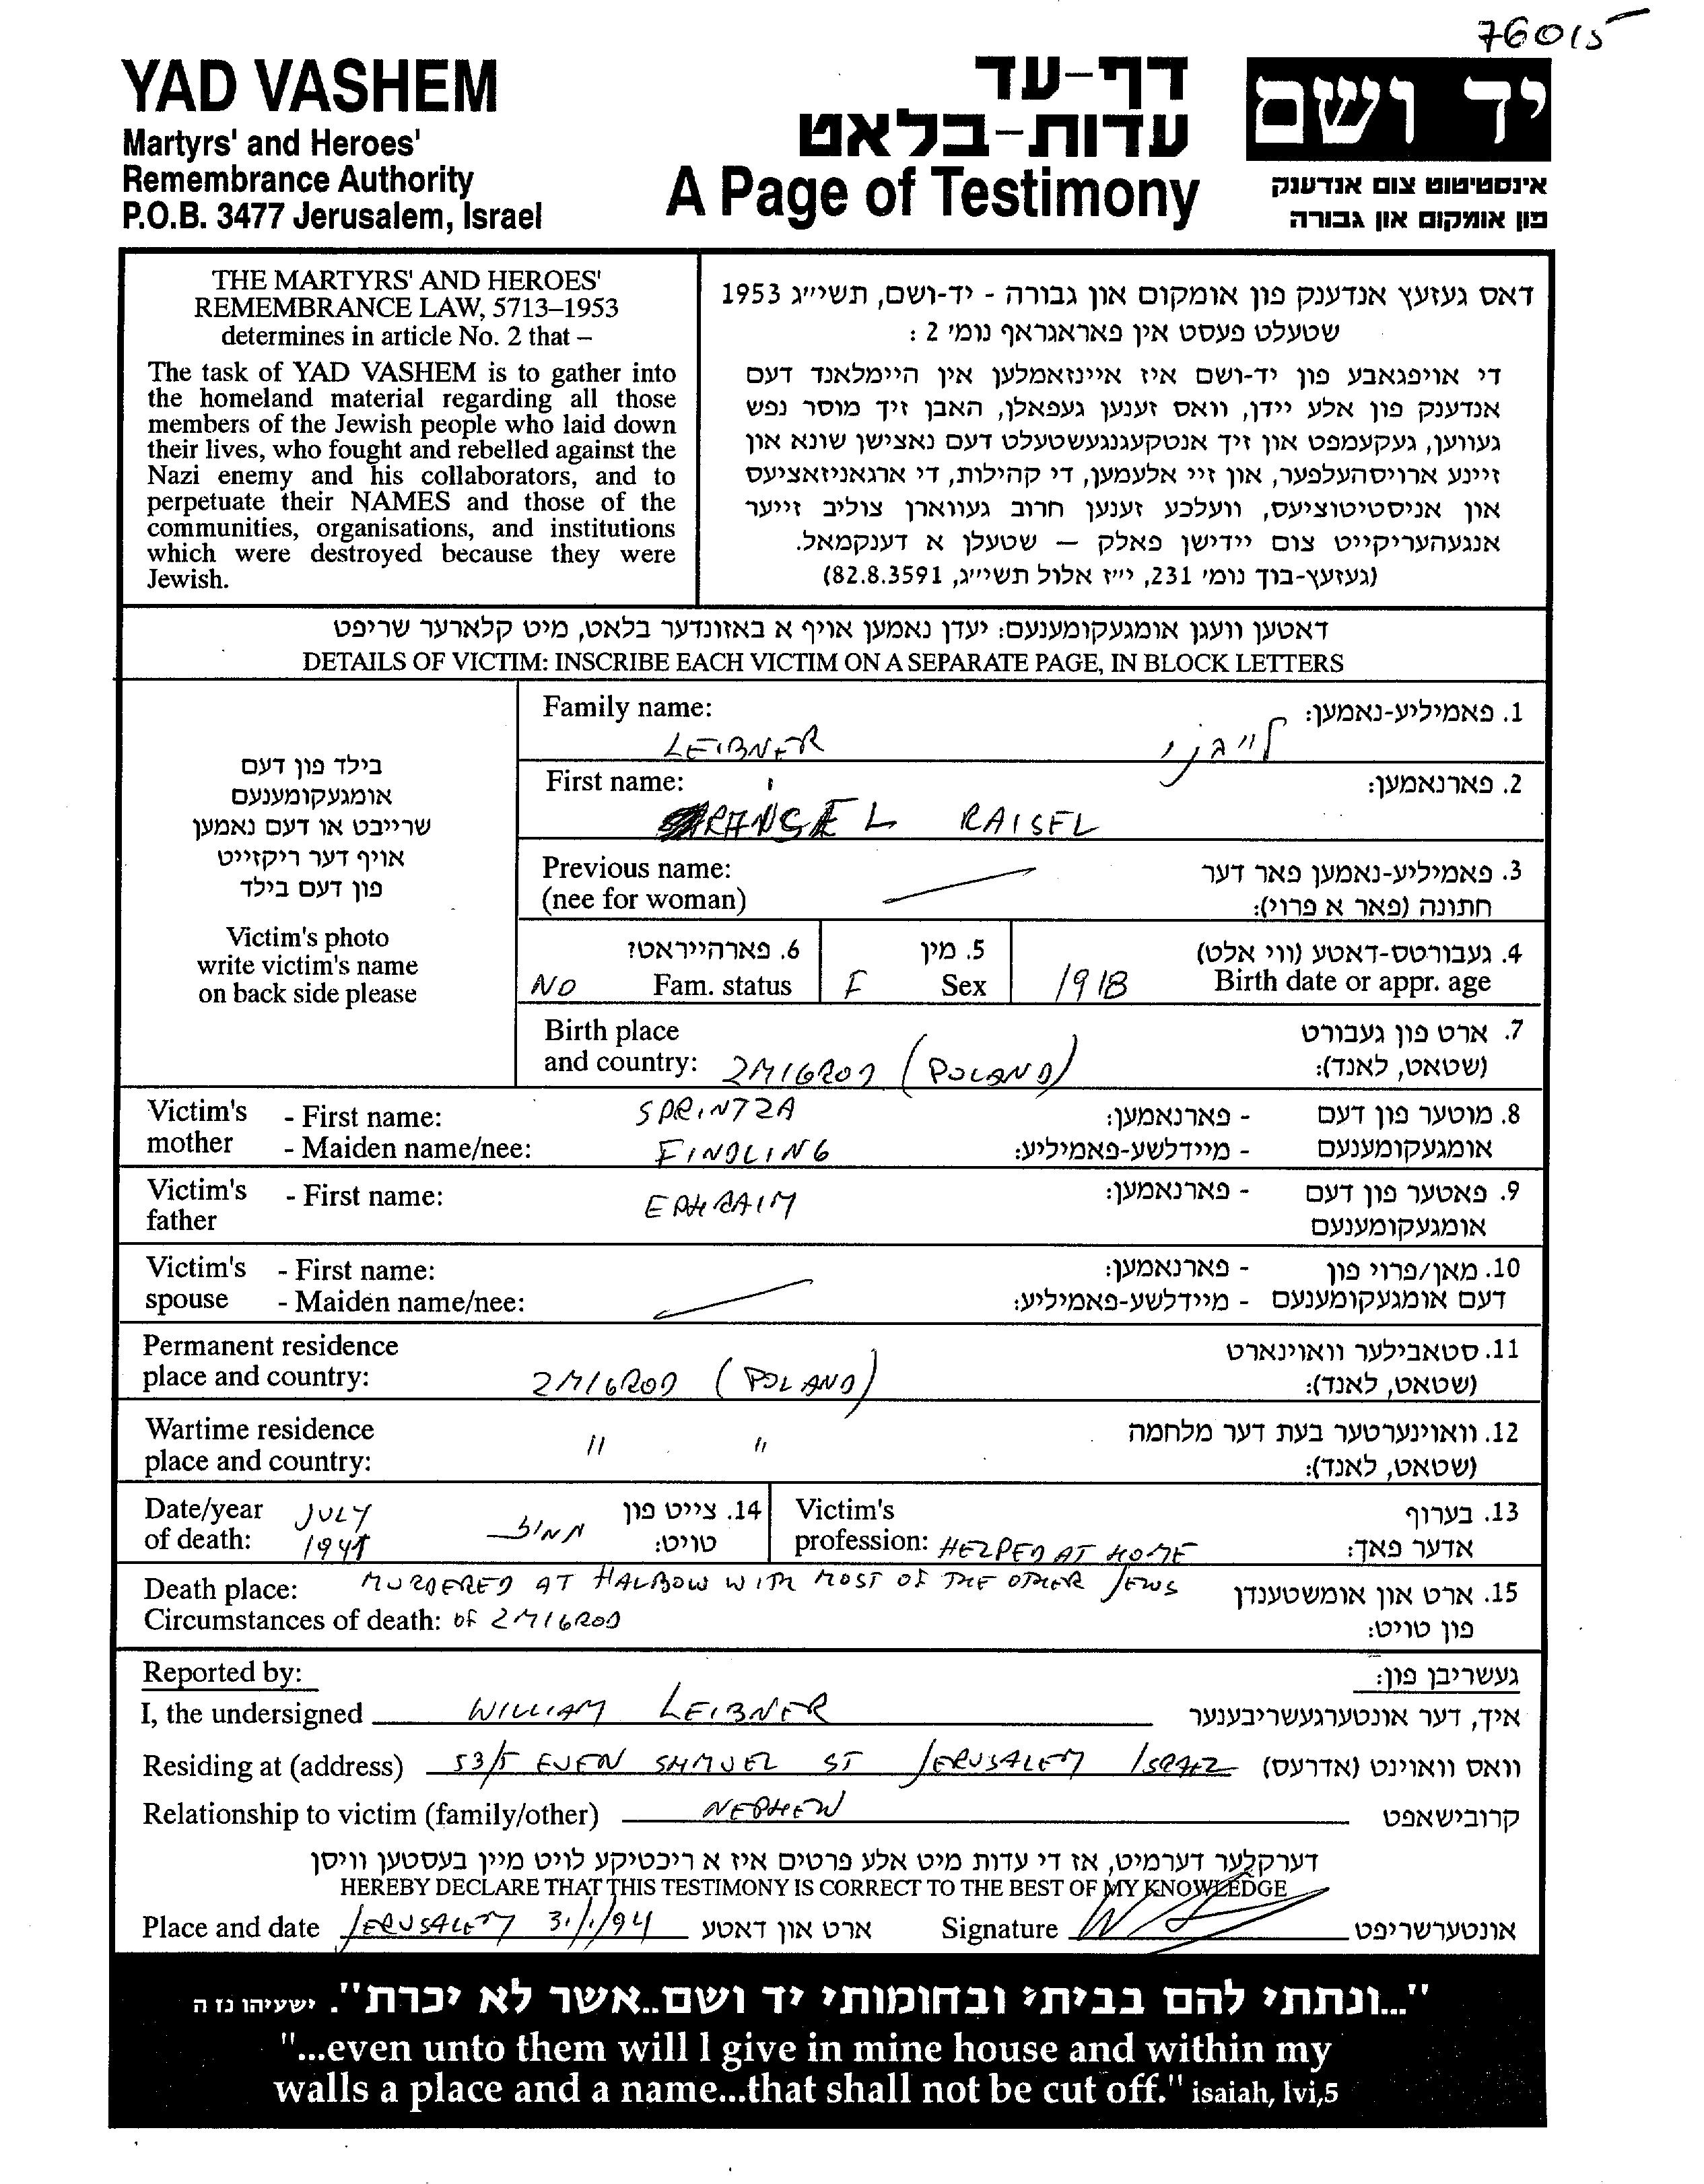 76015
YAD VASHEM
Martyrs' and Heroes'
Remembrance Authority
P.O.B. 3477 Jerusalem, Israel
דף-עד
עדות-בלאט
A Page of Testimony
יד ושם
אינסטיטוט צום אנדענק
פון אומקום און גבורה
THE MARTYRS' AND HEROES'
REMEMBRANCE LAW, 5713–1953
determines in article No. 2 that –
The task of YAD VASHEM is to gather into
the homeland material regarding all those
members of the Jewish people who laid down
their lives, who fought and rebelled against the
Nazi enemy and his collaborators, and to
perpetuate their NAMES and those of the
communities, organisations, and institutions
which were destroyed because they were
Jewish.
דאס געזעץ אנדענק פון אומקום און גבורה - יד-ושם, תשי״ג 1953
שטעלט פעסט אין פאראגראף נומ׳ 2 :
די אויפגאבע פון יד-ושם איז איינזאמלען אין היימלאנד דעם
אנדענק פון אלע יידן, וואס זענען געפאלן, האבן זיך מוסר נפש
געווען, געקעמפט און זיך אנטקעגנגעשטעלט דעם נאצישן שונא און
זיינע ארויסהעלפער, און זיי אלעמען, די קהילות, די ארגאניזאציעס
און אניסטיטוציעס, וועלכע זענען חרוב געווארן צוליב זייער
אנגעהעריקייט צום יידישן פאלק — שטעלן א דענקמאל.
(געזעץ-בוך נומ׳ 231, י״ז אלול תשי״ג, 82.8.3591)
דאטען וועגן אומגעקומענעם: יעדן נאמען אויף א באזונדער בלאט, מיט קלארער שריפט
DETAILS OF VICTIM: INSCRIBE EACH VICTIM ON A SEPARATE PAGE, IN BLOCK LETTERS
בילד פון דעם
אומגעקומענעם
שרייבט או דעם נאמען
אויף דער ריקזייט
פון דעם בילד
Victim's photo
write victim's name
on back side please
Family name: 1. פאמיליע-נאמען:
LEIBNER לייבנר
First name: 2. פארנאמען:
RAISEL
Previous name: 3. פאמיליע-נאמען פאר דער
(nee for woman) חתונה (פאר א פרוי):
6. פארהייראט? 5. מין 4. געבורטס-דאטע (ווי אלט)
NO Fam. status F Sex 1918 Birth date or appr. age
Birth place 7. ארט פון געבורט
and country: ZMIGROD (POLAND) (שטאט, לאנד):
Victim's - First name: SPRINTZA - פארנאמען: 8. מוטער פון דעם
mother - Maiden name/nee: FINDLING - מיידלשע-פאמיליע: אומגעקומענעם
Victim's - First name: EPHRAIM - פארנאמען: 9. פאטער פון דעם
father אומגעקומענעם
Victim's - First name: - פארנאמען: 10. מאן/פרוי פון
spouse - Maiden name/nee: - מיידלשע-פאמיליע: דעם אומגעקומענעם
Permanent residence 11. סטאבילער וואוינארט
place and country: ZMIGROD (POLAND) (שטאט, לאנד):
Wartime residence " " 12. וואוינערטער בעת דער מלחמה
place and country: (שטאט, לאנד):
Date/year JULY 14. צייט פון Victim's 13. בערוף
of death: טויט: profession: HELPED AT HOME אדער פאך:
Death place: MURDERED AT HALBOW WITH MOST OF THE OTHER JEWS 15. ארט און אומשטענדן
Circumstances of death: OF ZMIGROD פון טויט:
Reported by: געשריבן פון:
I, the undersigned WILLIAM LEIBNER איך, דער אונטערגעשריבענער
Residing at (address) 53/5 EVEN SHMUEL ST JERUSALEM ISRAEL וואס וואוינט (אדרעס)
Relationship to victim (family/other) NEPHEW קרובישאפט
דערקלער דערמיט, אז די עדות מיט אלע פרטים איז א ריכטיקע לויט מיין בעסטען וויסן
HEREBY DECLARE THAT THIS TESTIMONY IS CORRECT TO THE BEST OF MY KNOWLEDGE
Place and date JERUSALEM 31/1/94 ארט און דאטע Signature אונטערשריפט
"...ונתתי להם בביתי ובחומותי יד ושם..אשר לא יכרת". ישעיהו נז ה
"...even unto them will I give in mine house and within my
walls a place and a name...that shall not be cut off." isaiah, lvi,5